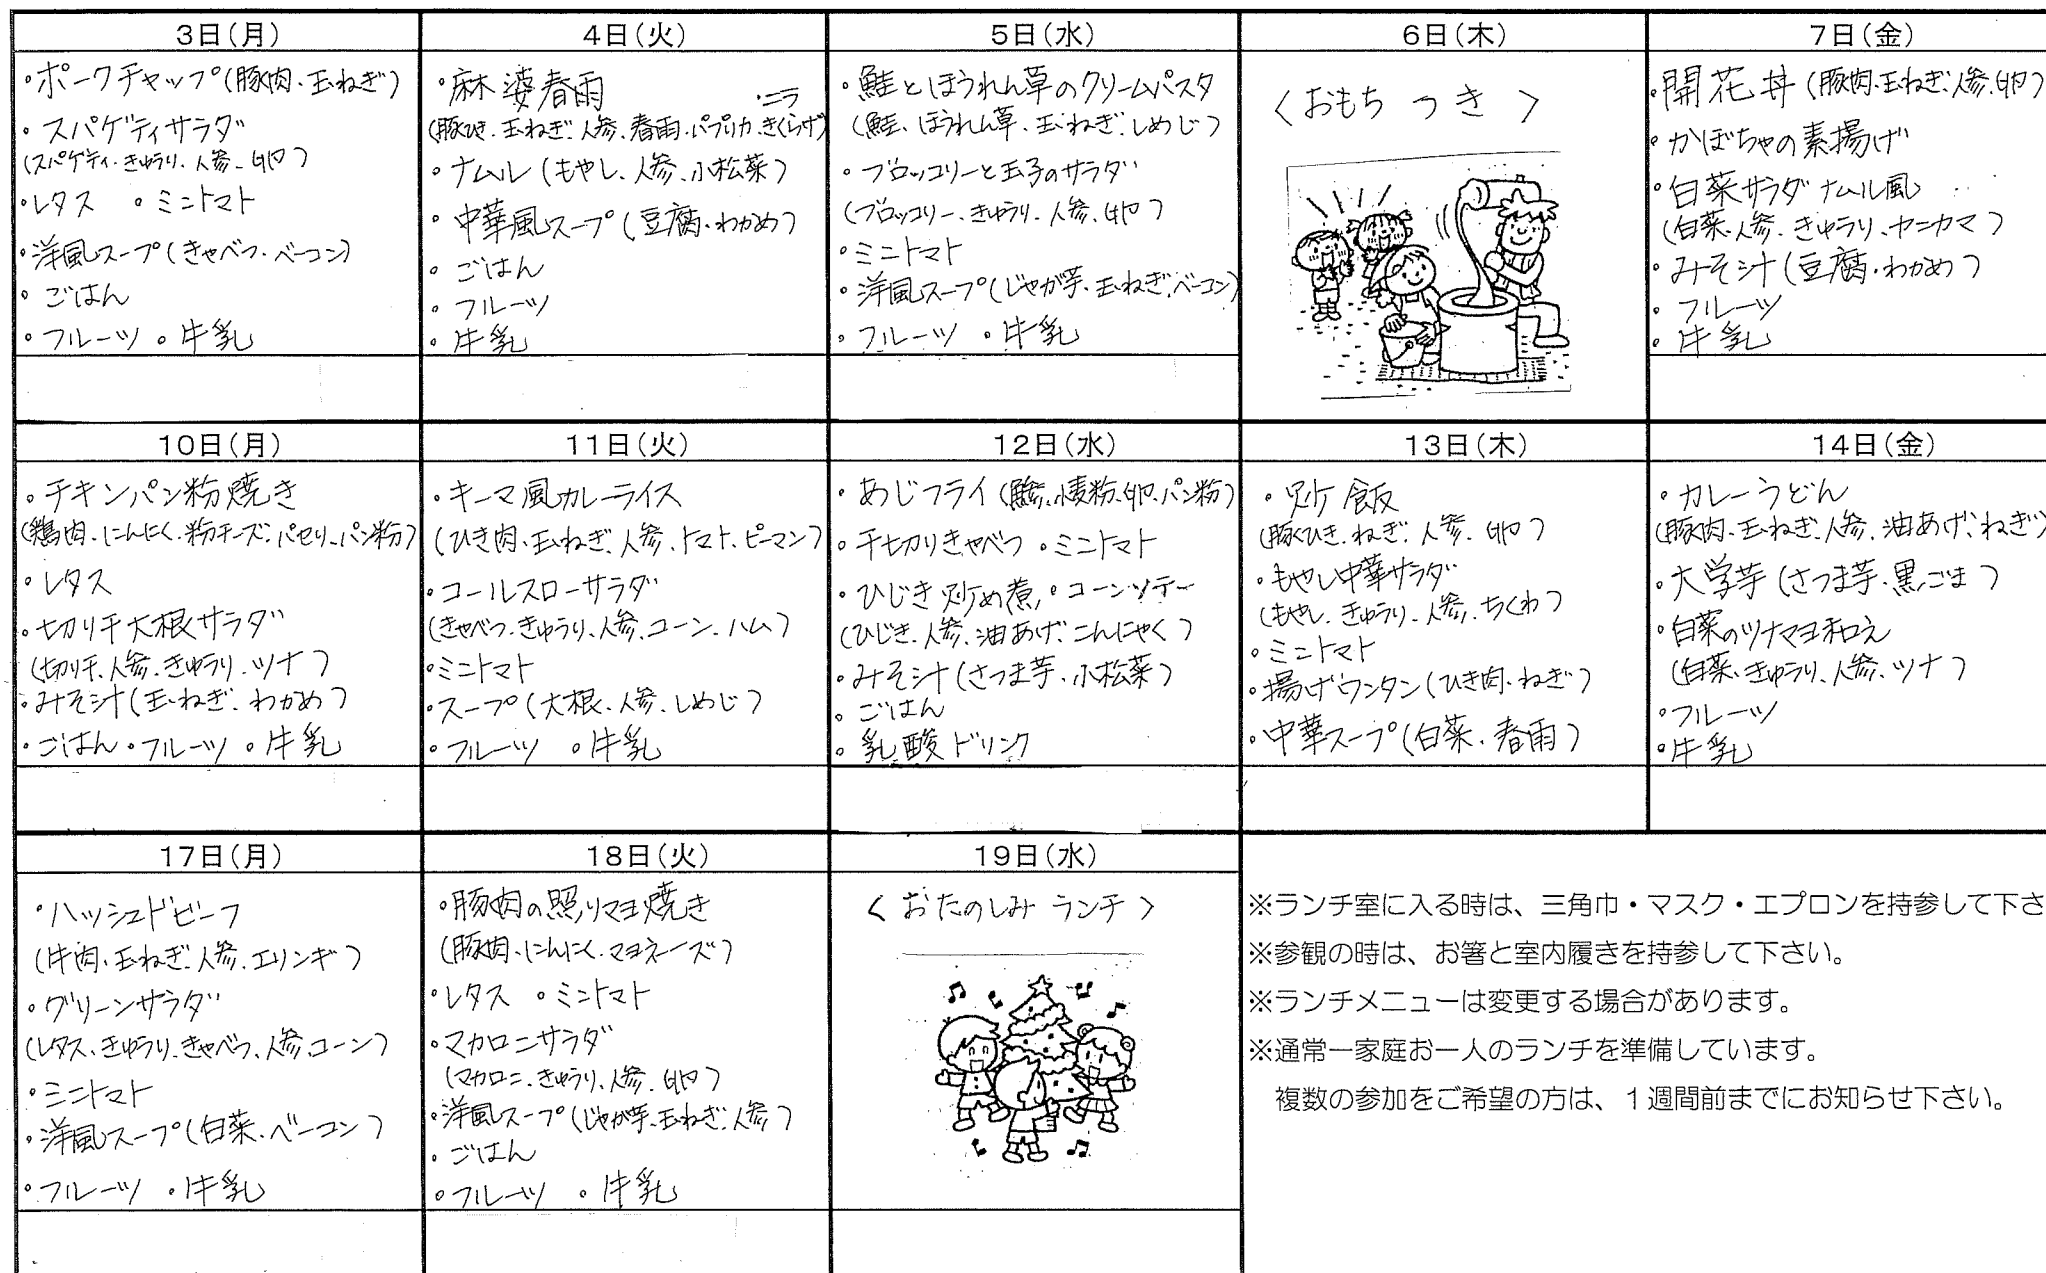 3日(月)
・ポークチャップ(豚肉、玉ねぎ)
・スパゲティサラダ
(スパゲティ、きゅうり、人参、卵)
・レタス ・ミニトマト
・洋風スープ(きゃべつ、ベーコン)
・ごはん
・フルーツ ・牛乳
4日(火)
・麻婆春雨 ・ニラ
(豚ひき、玉ねぎ、人参、春雨、パプリカ、きくらげ)
・ナムル(もやし、人参、小松菜)
・中華風スープ(豆腐、わかめ)
・ごはん
・フルーツ
・牛乳
5日(水)
・鮭とほうれん草のクリームパスタ
(鮭、ほうれん草、玉ねぎ、しめじ)
・ブロッコリーと玉子のサラダ
(ブロッコリー、きゅうり、人参、卵)
・ミニトマト
・洋風スープ(じゃが芋、玉ねぎ、ベーコン)
・フルーツ ・牛乳
6日(木)
〈おもちつき〉
7日(金)
・開花丼(豚肉、玉ねぎ、人参、卵)
・かぼちゃの素揚げ
・白菜サラダナムル風
(白菜、人参、きゅうり、カニカマ)
・みそ汁(豆腐、わかめ)
・フルーツ
・牛乳
10日(月)
・チキンパン粉焼き
(鶏肉、にんにく、粉チーズ、パセリ、パン粉)
・レタス
・切り干大根サラダ
(切り干、人参、きゅうり、ツナ)
・みそ汁(玉ねぎ、わかめ)
・ごはん ・フルーツ ・牛乳
11日(火)
・キーマ風カレーライス
(ひき肉、玉ねぎ、人参、トマト、ピーマン)
・コールスローサラダ
(きゃべつ、きゅうり、人参、コーン、ハム)
・ミニトマト
・スープ(大根、人参、しめじ)
・フルーツ ・牛乳
12日(水)
・あじフライ(鯵、小麦粉、卵、パン粉)
・千切りきゃべつ ・ミニトマト
・ひじき炒め煮 ・コーンソテー
(ひじき、人参、油あげ、こんにゃく)
・みそ汁(さつま芋、小松菜)
・ごはん
・乳酸ドリンク
13日(木)
・炒飯
(豚ひき、ねぎ、人参、卵)
・もやし中華サラダ
(もやし、きゅうり、人参、ちくわ)
・ミニトマト
・揚げワンタン(ひき肉、ねぎ)
・中華スープ(白菜、春雨)
14日(金)
・カレーうどん
(豚肉、玉ねぎ、人参、油あげ、ねぎ)
・大学芋(さつま芋、黒ごま)
・白菜のツナマヨ和え
(白菜、きゅうり、人参、ツナ)
・フルーツ
・牛乳
17日(月)
・ハッシュドビーフ
(牛肉、玉ねぎ、人参、エリンギ)
・グリーンサラダ
(レタス、きゅうり、きゃべつ、人参、コーン)
・ミニトマト
・洋風スープ(白菜、ベーコン)
・フルーツ ・牛乳
18日(火)
・豚肉の照りマヨ焼き
(豚肉、にんにく、マヨネーズ)
・レタス ・ミニトマト
・マカロニサラダ
(マカロニ、きゅうり、人参、卵)
・洋風スープ(じゃが芋、玉ねぎ、人参)
・ごはん
・フルーツ ・牛乳
19日(水)
〈おたのしみランチ〉
※ランチ室に入る時は、三角巾・マスク・エプロンを持参して下さ
※参観の時は、お箸と室内履きを持参して下さい。
※ランチメニューは変更する場合があります。
※通常一家庭お一人のランチを準備しています。
複数の参加をご希望の方は、1週間前までにお知らせ下さい。